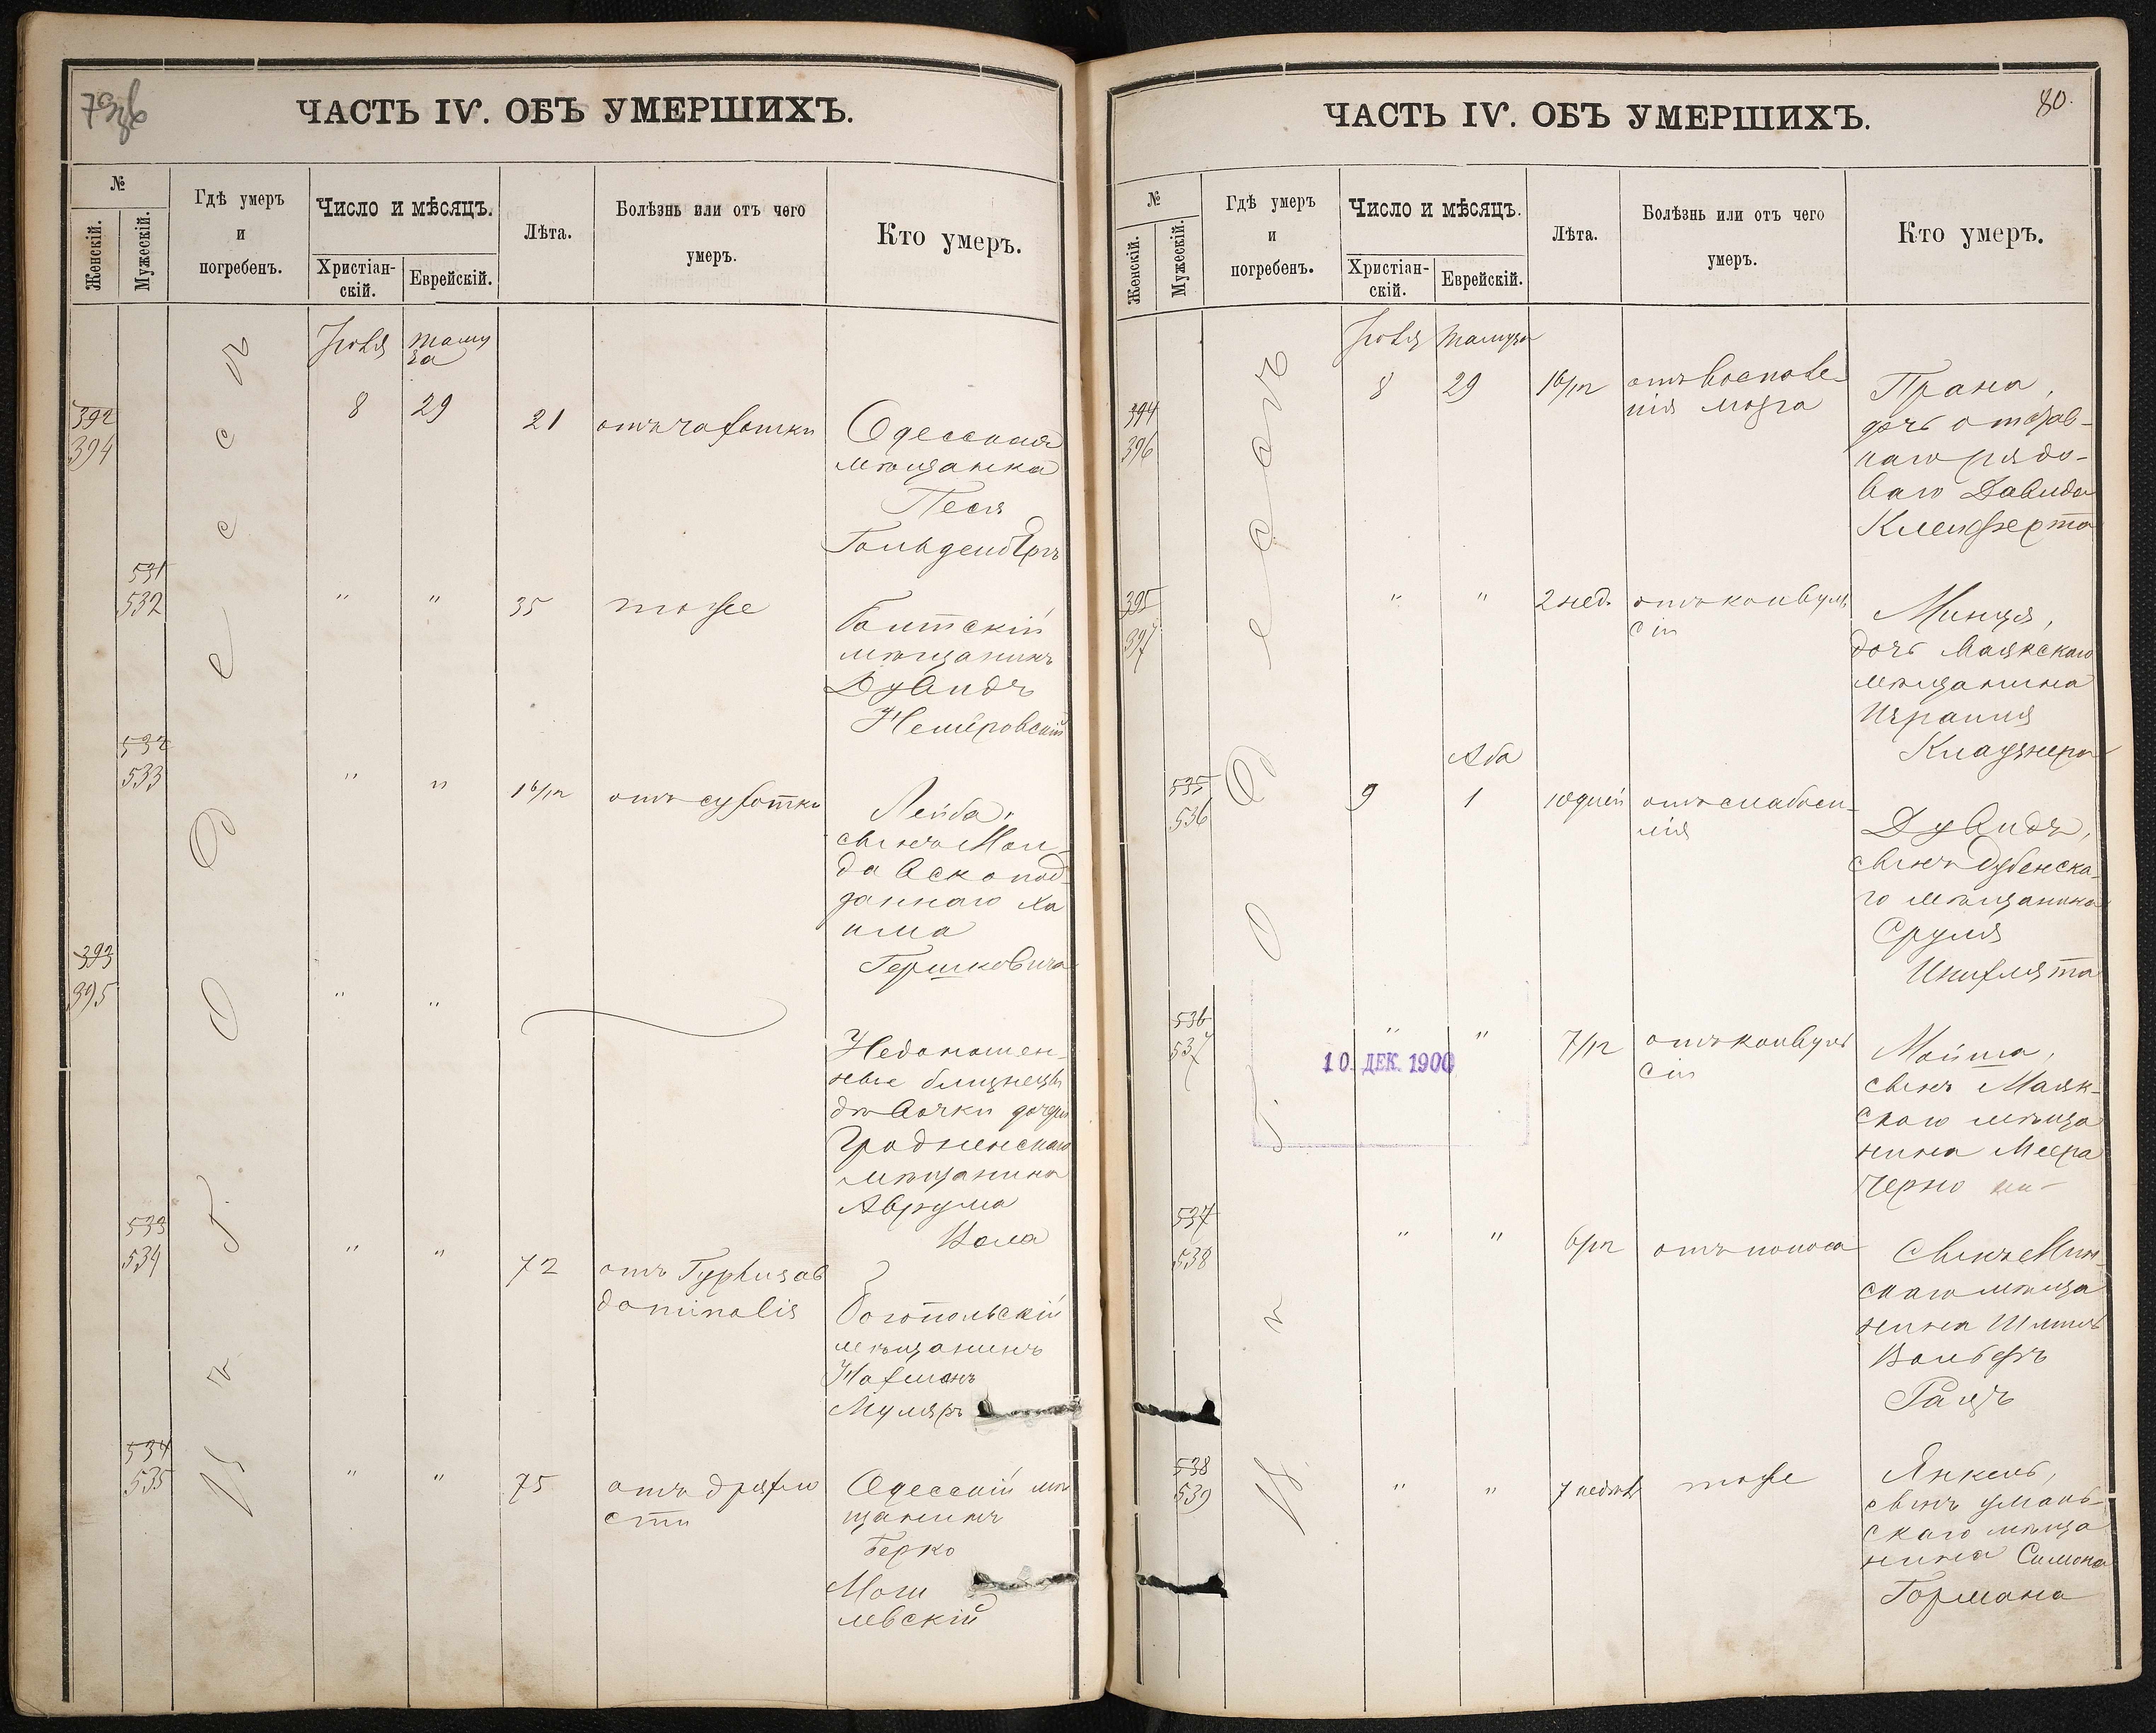 79об
ЧАСТЬ IV. ОБЪ УМЕРШИХЪ.
№
Женскій.
Мужескій.
Гдѣ умеръ
и
погребенъ.
Число и мѣсяцъ.
Христіан-
скій.
Еврейскій.
Лѣта.
Болѣзнь или отъ чего
умеръ.
Кто умеръ.
Въ г. Одессѣ
Іюля
Таму
за
392
394
8
29
21
отъ чахотки
Одесская
мѣщанка
Песя
Гольденбергъ
531
532
"
"
35
тоже
Балтскій
мѣщанинъ
Дувидъ
Немировскій
532
533
"
"
1 6/12
отъ сухотки
Лейба,
сынъ Мол-
давско под-
даннаго Ха
има
Гершковича
393
395
"
"
Недоношен-
ные близнецы
дѣвочки дочери
Гродненскаго
мѣщанина
Аврума
Вола
533
534
"
"
72
отъ Typhus ab
dominalis
Богопольскій
мѣщанинъ
Нахманъ
Муляръ
534
535
"
"
75
отъ дряхло
сти
Одесскій мѣ
щанинъ
Берко
Моги
левскій
80.
ЧАСТЬ IV. ОБЪ УМЕРШИХЪ.
№
Женскій.
Мужескій.
Гдѣ умеръ
и
погребенъ.
Число и мѣсяцъ.
Христіан-
скій.
Еврейскій.
Лѣта.
Болѣзнь или отъ чего
умеръ.
Кто умеръ.
Въ г. Одессѣ
Іюля
Тамуза
394
396
8
29
1 6/12
отъ воспале-
нія мозга
Прана,
дочь отстав-
наго рядо-
ваго Давида
395
397
"
"
2 нед.
отъ конвуль
сіи
Минця,
дочь Маякскаго
мѣщанина
Израиля
Клаузнера
Аба
535
536
9
1
10 дней
отъ слабоси-
лія
Дувидъ,
сынъ Дубенска-
го мѣщанина
Сруля
536
537
"
"
7/12
отъ конвуль
сіи
10. ДЕК. 1900
Мойша,
сынъ Маяк-
скаго мѣща
нина Меера
Черно
537
538
"
"
6/12
отъ поноса
Сынъ Мин-
скаго мѣща
нина Шмиль
Вольфъ
Рацъ
538
539
"
"
7 недѣль
тоже
Янкель,
сынъ Умань-
скаго мѣща
нина Симона
Гормана